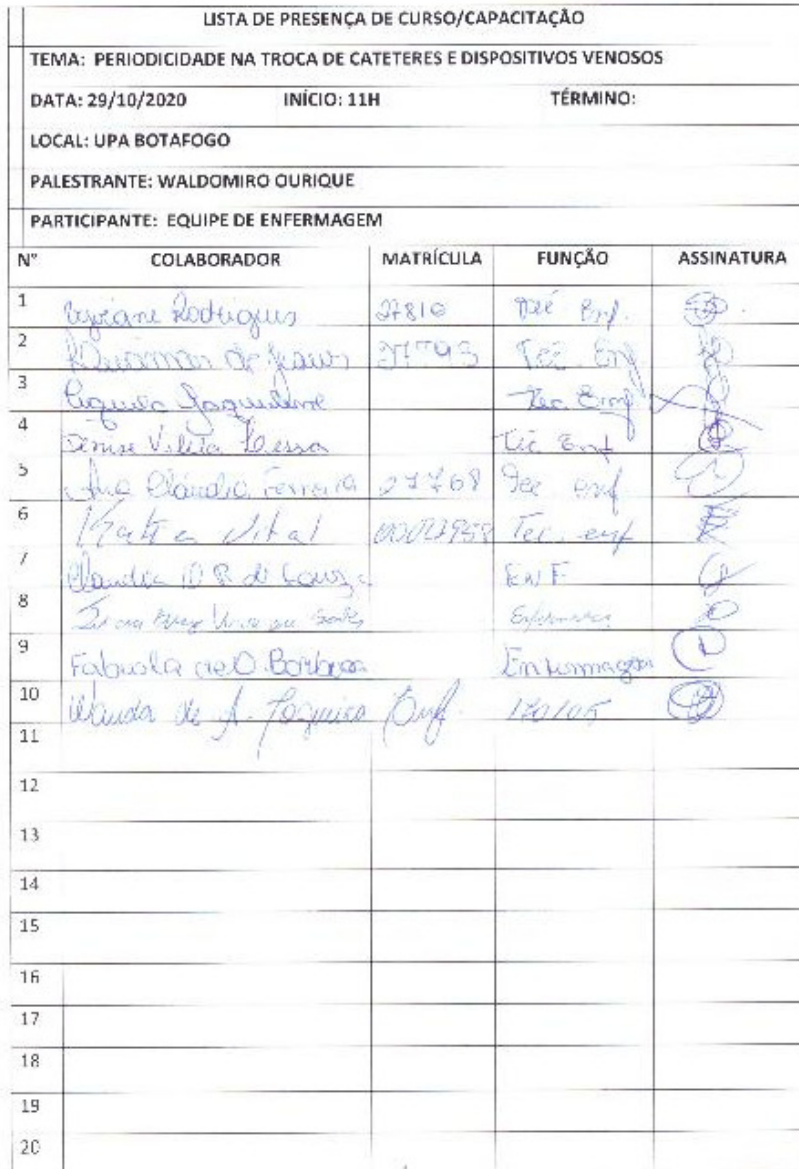 LISTA DE PRESENÇA DE CURSO/CAPACITAÇÃO
TEMA: PERIODICIDADE NA TROCA DE CATETERES E DISPOSITIVOS VENOSOS
DATA: 29/10/2020 INÍCIO: 11H TÉRMINO:
LOCAL: UPA BOTAFOGO
PALESTRANTE: WALDOMIRO OURIQUE
PARTICIPANTE: EQUIPE DE ENFERMAGEM
N° COLABORADOR MATRÍCULA FUNÇÃO ASSINATURA
1 Rodrigues 27810 Enf.
2 de Jesus 27795 Tec. Enf
3 Jaquelene Tec. Enf
4 Denise Lessa Tec Enf
5 Ana Claudia Ferreira 27768 Tec enf
6 Katia Vital Tec. enf
7 Claudia de Souza ENF
8
9 Fabiola de O. Barbosa Enfermagem
10 Wanda de A. Enf.
11
12
13
14
15
16
17
18
19
20